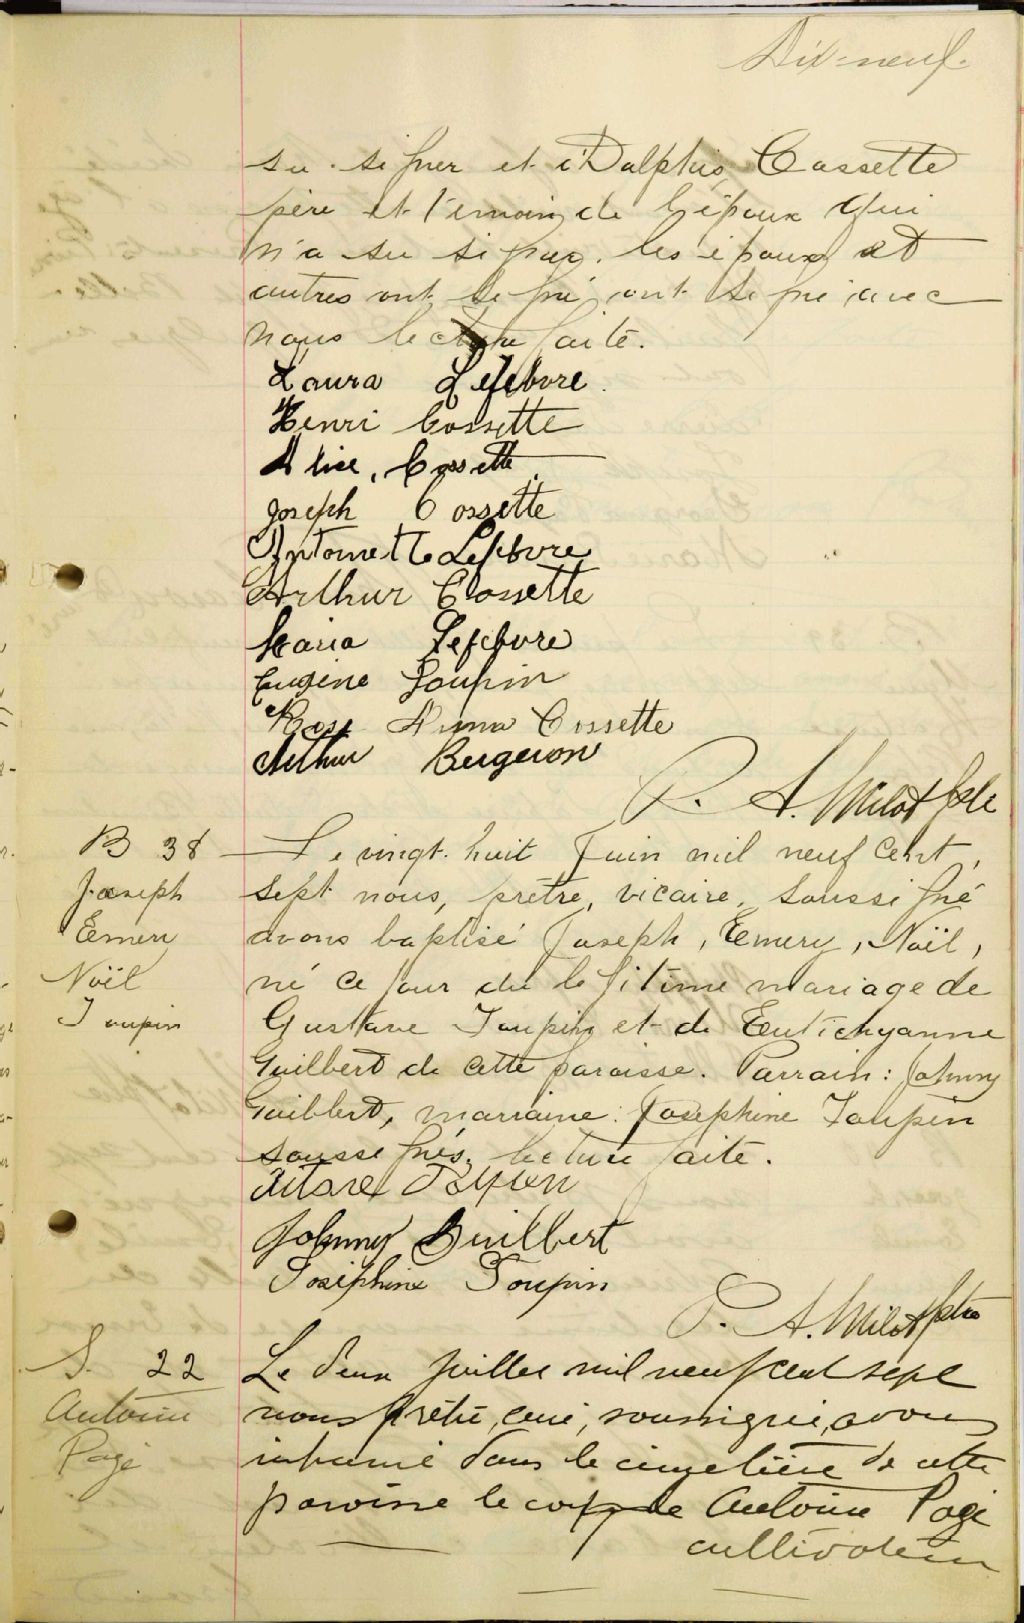 Dix-neuf.
su signer et Dalphis Cossette
père et témoin de l'époux qui
n'a su signer. les époux et
autres ont signé ont signé avec
nous lecture faite.
Laura Lefebvre.
Henri Cossette
Alice, Cossette
Joseph Cossette
Antoinette Lefebvre
Arthur Cossette
Maria Lefebvre
Eugène Toupin
Rose Anna Cossette
Arthur Bergeron
P. A. Milot Ptre
B 38 Le vingt-huit Juin mil neuf cent,
Joseph sept nous, prêtre, vicaire, soussigné
Emery avons baptisé Joseph, Emery, Noël,
Noël né ce jour du legitime mariage de
Toupin Gustave Toupin et de Eutichyanne
Guilbert de cette paroisse. Parrain: Johnny
Guilbert, marraine: Josephine Toupin
soussignés. lecture faite.
Johnny Guilbert
Josephine Toupin
P. A. Milot Ptre
S. 22 Le deux juillet mil neuf cent sept
Antoine nous prêtre, curé, soussigné, avons
Pagé inhumé dans le cimetière de cette
paroisse le corps de Antoine Pagé
cultivateur